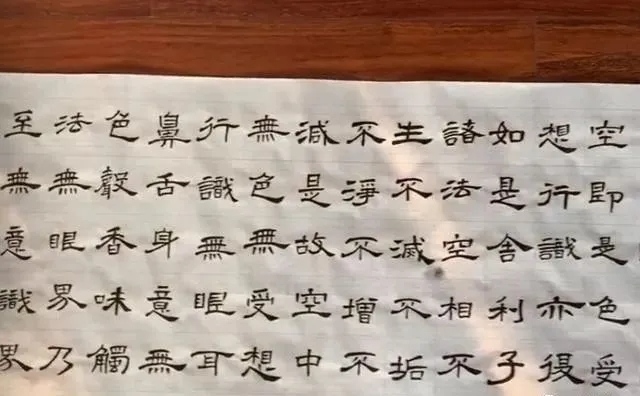 空即是色受
想行識亦復
如是舍利子
諸法空相不
生不滅不垢
不淨不增不
減是故空中
無色無受想
行識無眼耳
鼻舌身意無
色聲香味觸
法無眼界乃
至無意識界